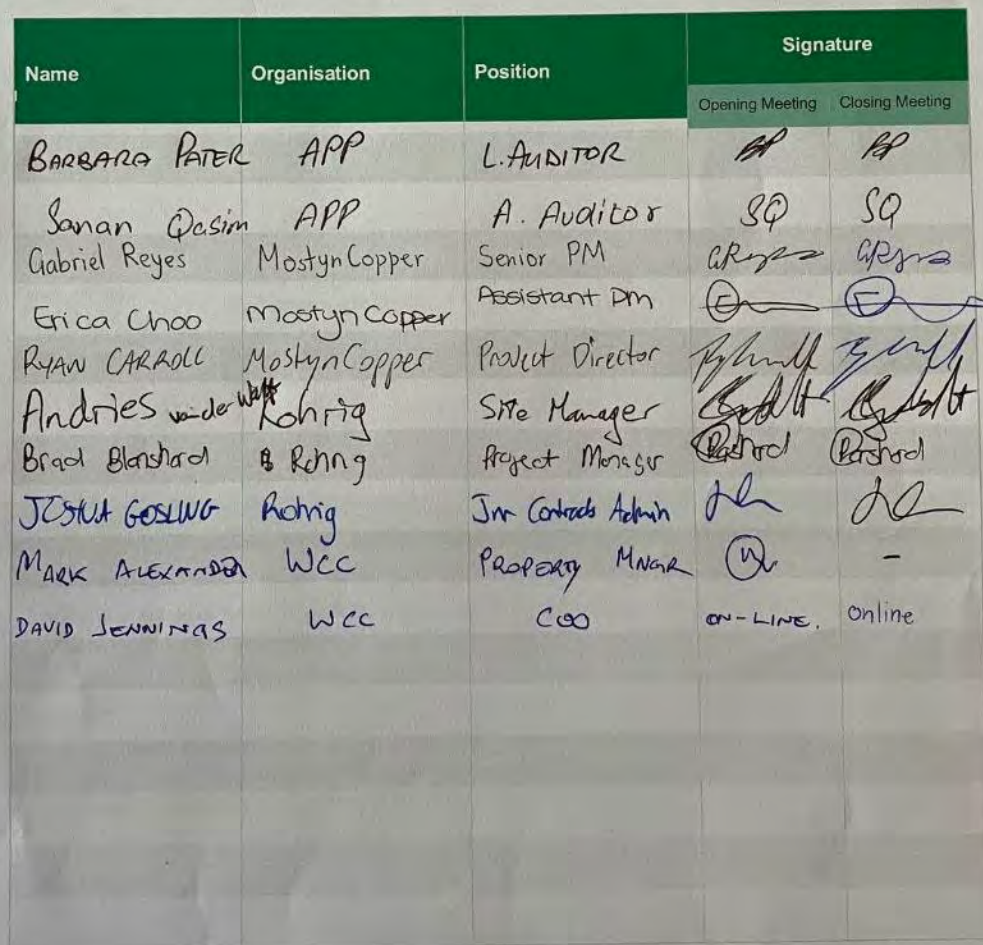 Signature
Name Organisation Position
Opening Meeting Closing Meeting
BARBARA PATER APP L. AUDITOR BP BP
Sanan Qasim APP A. Auditor SQ SQ
Gabriel Reyes MostynCopper Senior PM GReyes GReyes
Erica Choo MostynCopper Assistant PM E E
RYAN CARROLL MostynCopper Project Director
Andries van der Walt Rohrig Site Manager
Brad Blanshard Rohrig Project Manager
JOSHUA GOSLING Rohrig Jnr Contracts Admin
MARK ALEXANDER WCC PROPERTY MNGR -
DAVID JENNINGS WCC COO ON-LINE. Online